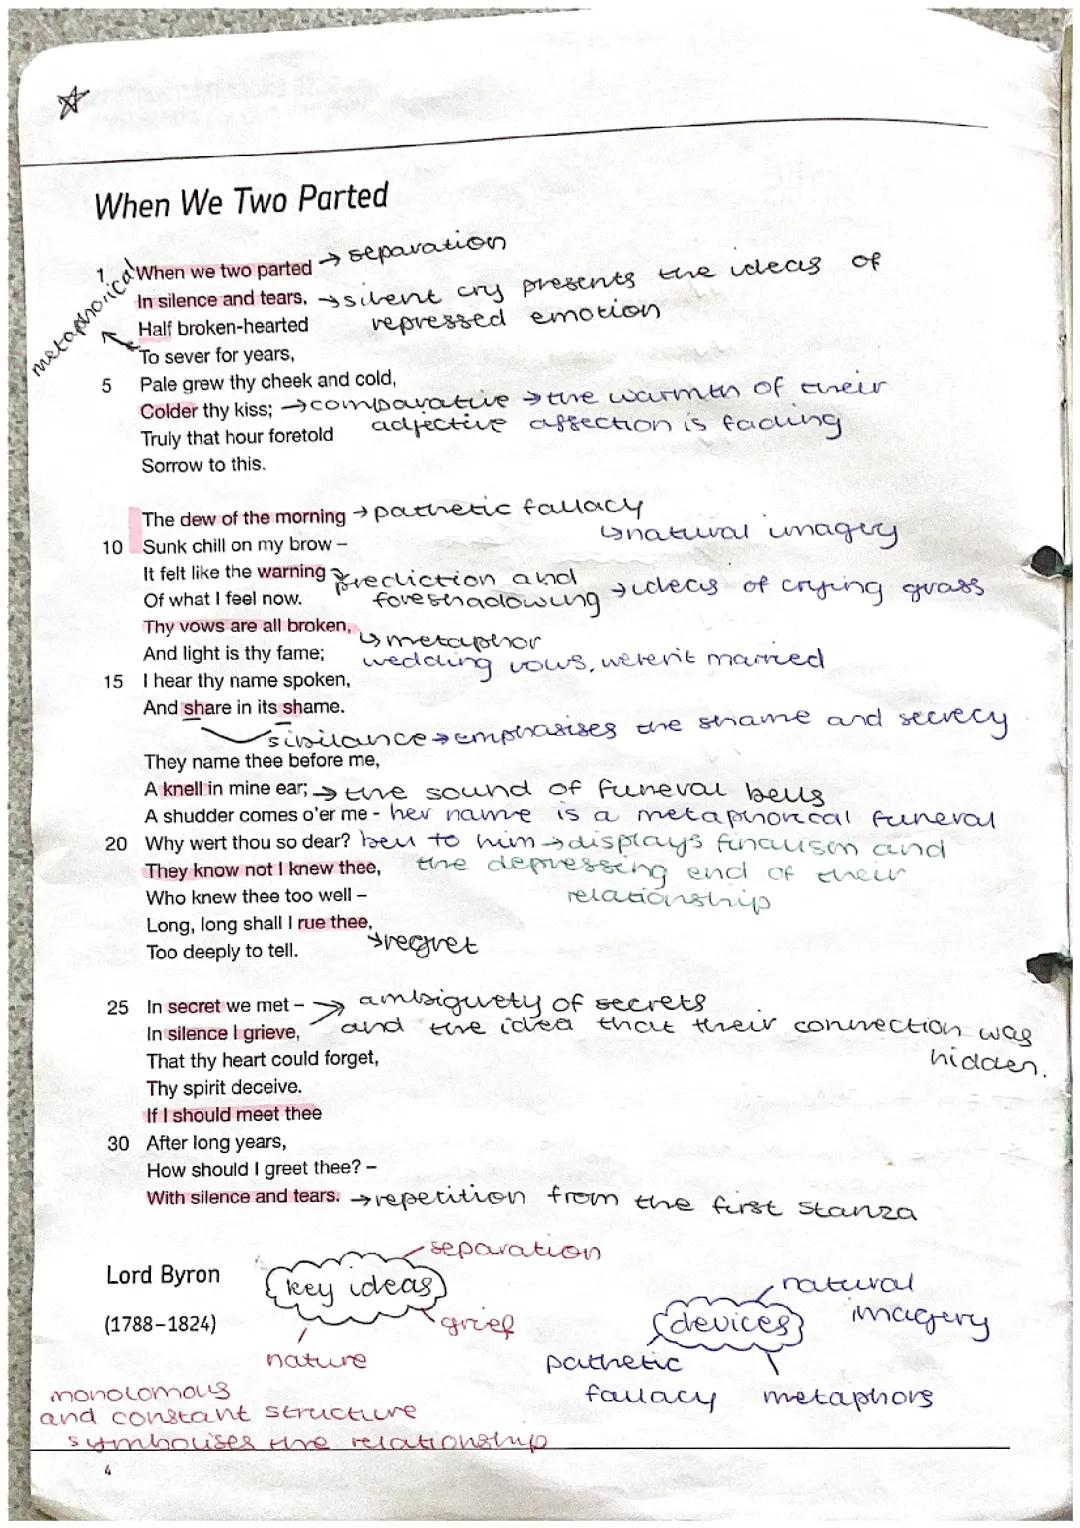 When We Two Parted
metaphorical
1 When we two parted → separation
In silence and tears, → silent cry presents the ideas of
Half broken-hearted repressed emotion
To sever for years,
5 Pale grew thy cheek and cold,
Colder thy kiss; → comparative → the warmth of their
Truly that hour foretold adjective affection is fading
Sorrow to this.
The dew of the morning → pathetic fallacy
10 Sunk chill on my brow – ↳ natural imagery
It felt like the warning → prediction and
Of what I feel now. foreshadowing → ideas of crying grass
Thy vows are all broken, ↳ metaphor
And light is thy fame; wedding vows, weren't married
15 I hear thy name spoken,
And share in its shame.
sibilance → emphasises the shame and secrecy
They name thee before me,
A knell in mine ear; → the sound of funeral bells
A shudder comes o'er me - her name is a metaphorical funeral
20 Why wert thou so dear? bell to him → displays finalism and
They know not I knew thee, the depressing end of their
Who knew thee too well – relationship
Long, long shall I rue thee,
Too deeply to tell. → regret
25 In secret we met – → ambiguety of secrets
In silence I grieve, and the idea that their connection was
That thy heart could forget, hidden.
Thy spirit deceive.
If I should meet thee
30 After long years,
How should I greet thee? –
With silence and tears. → repetition from the first stanza
separation
Lord Byron key ideas natural
(1788–1824) grief devices imagery
nature pathetic
fallacy metaphors
monolomous
and constant structure
symbolises the relationship
4